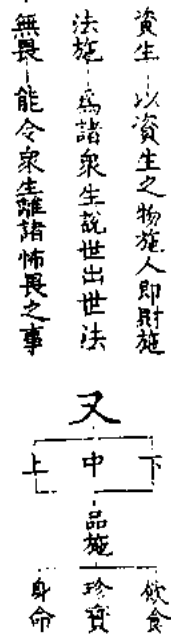 資生—以資生之物施人即財施
法施—為諸眾生說世出世法
無畏—能令眾生離諸怖畏之事
又
下
中
上
品施
飲食
珍寶
身命